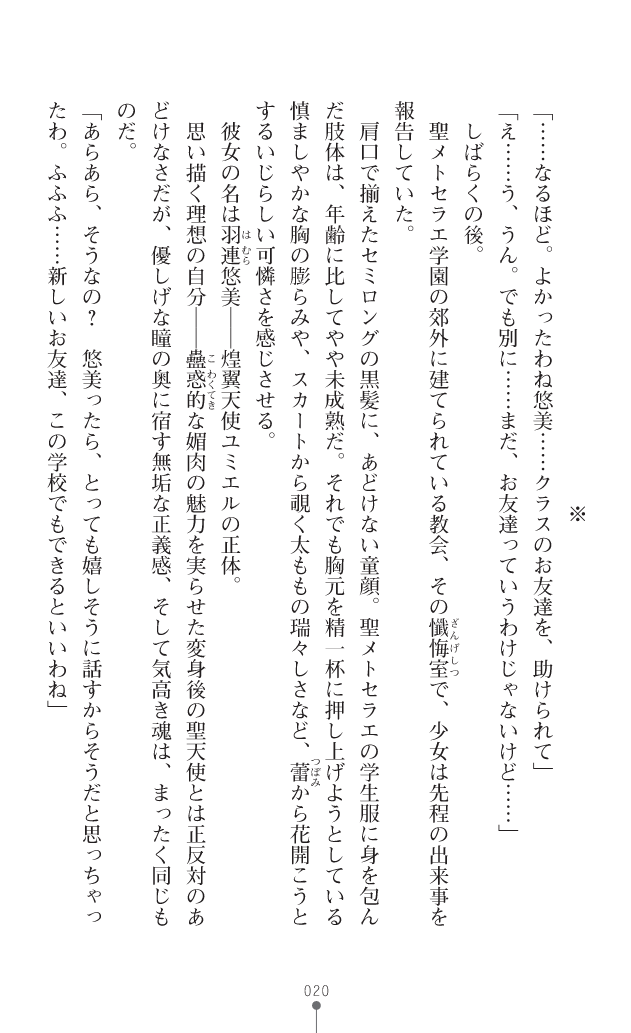 ※
「……なるほど。よかったわね悠美……クラスのお友達を、助けられて」
「え……う、うん。でも別に……まだ、お友達っていうわけじゃないけど……」
しばらくの後。
聖メトセラエ学園の郊外に建てられている教会、その懺悔室(ざんげしつ)で、少女は先程の出来事を
報告していた。
肩口で揃えたセミロングの黒髪に、あどけない童顔。聖メトセラエの学生服に身を包ん
だ肢体は、年齢に比してやや未成熟だ。それでも胸元を精一杯に押し上げようとしている
慎ましやかな胸の膨らみや、スカートから覗く太ももの瑞々しさなど、蕾(つぼみ)から花開こうと
するいじらしい可憐さを感じさせる。
彼女の名は羽連(はむら)悠美――煌翼天使ユミエルの正体。
思い描く理想の自分――蠱惑的(こわくてき)な媚肉の魅力を実らせた変身後の聖天使とは正反対のあ
どけなさだが、優しげな瞳の奥に宿す無垢な正義感、そして気高き魂は、まったく同じも
のだ。
「あらあら、そうなの？　悠美ったら、とっても嬉しそうに話すからそうだと思っちゃっ
たわ。ふふふ……新しいお友達、この学校でもできるといいわね」
020